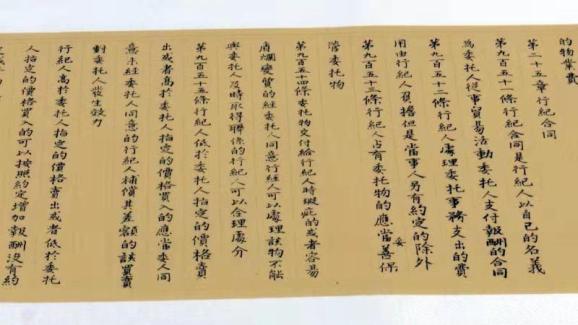 的物業費
第二十五章行紀合同
第九百五十一條行紀合同是行紀人以自己的名義
為委托人從事貿易活動委托人支付報酬的合同
第九百五十二條行紀人處理委托事務支出的費
用由行紀人負擔但是當事人另有約定的除外
第九百五十三條行紀人占有委托物的應當妥善保
管委托物
第九百五十四條委托物交付給行紀人時瑕疵的或者容易
腐爛變質的經委托人同意行紀人可以處理該物不能
與委托人及時取得聯係的行紀人可以合理處分
第九百五十五條行紀人低於委托人指定的價格賣
出或者高於委托人指定的價格買入的應當委人同
意未經委托人同意的行紀人補償其差額的該買賣
對委托人發生效力
行紀人高於委托人指定的價格賣出或者低於委托
人指定的價格買入的可以按照約定增加報酬沒有約